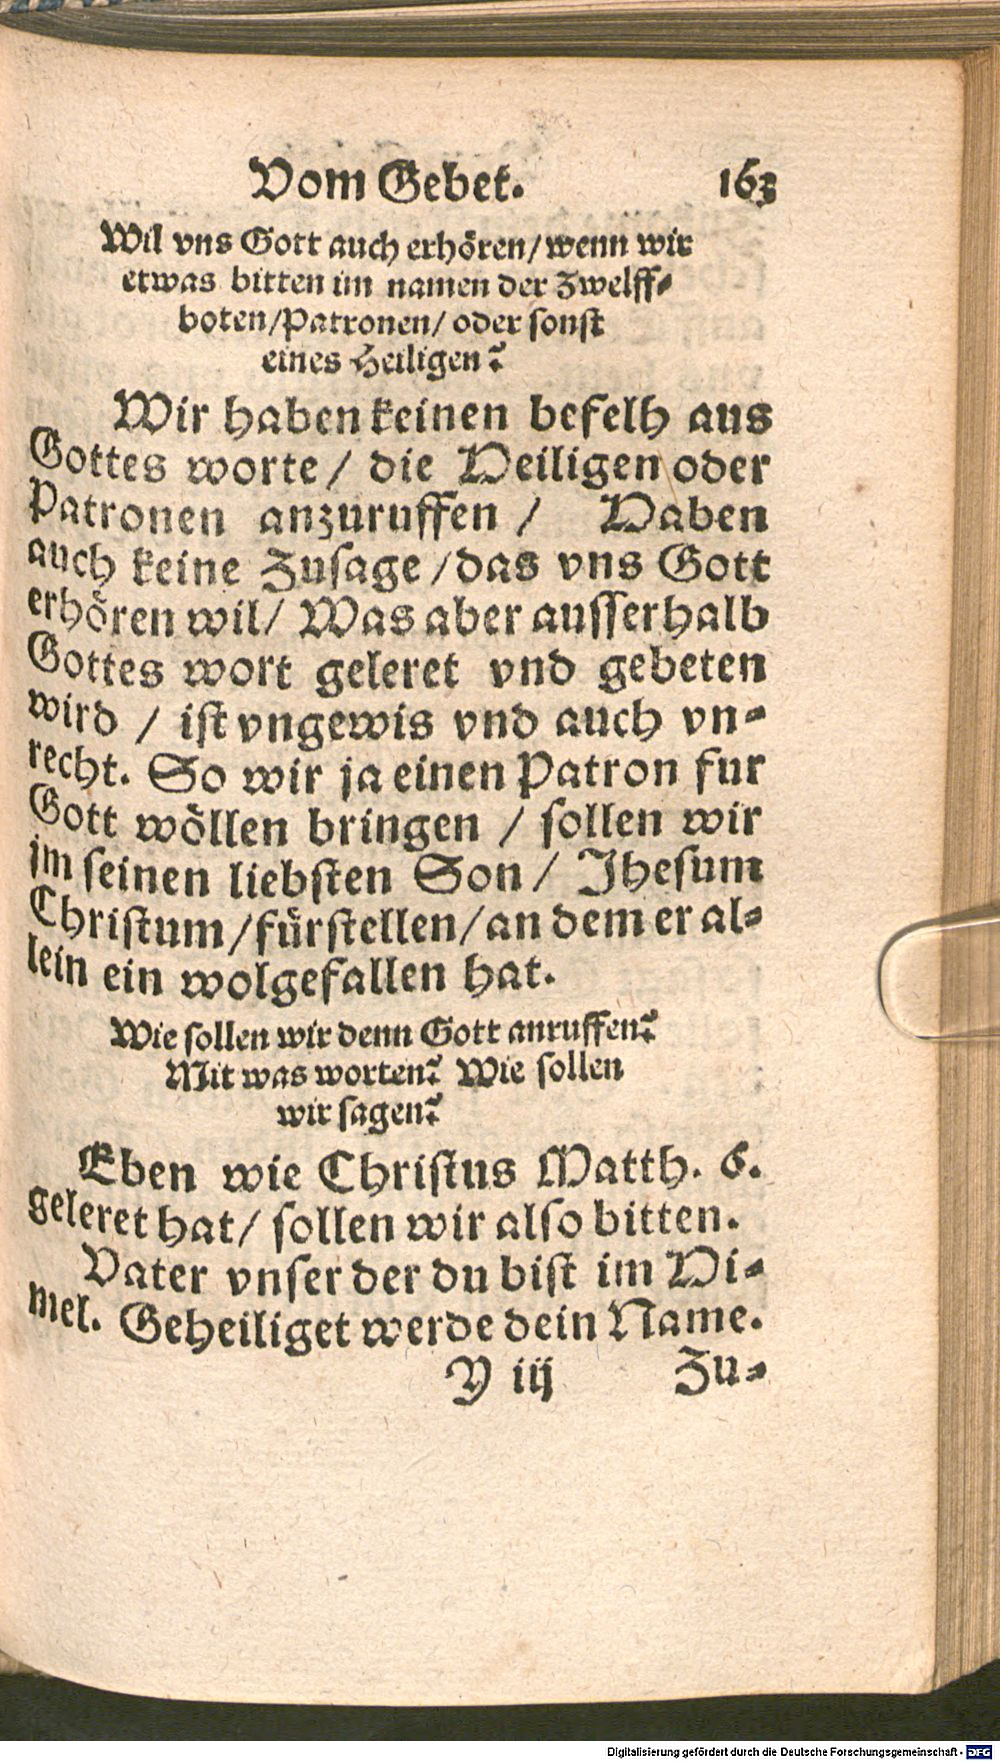 Vom Gebet. 163
Wil vns Gott auch erhören/wenn wir
etwas bitten im namen der Zwelff-
boten/Patronen/ oder sonst
eines Heiligen?
Wir haben keinen befelh aus
Gottes worte / die Heiligen oder
Patronen anzuruffen / Haben
auch keine Zusage /das vns Gott
erhören wil/ Was aber ausserhalb
Gottes wort geleret vnd gebeten
wird / ist vngewis vnd auch vn-
recht. So wir ja einen Patron fur
Gott wöllen bringen / sollen wir
jm seinen liebsten Son / Jhesum
Christum/fürstellen/an dem er al-
lein ein wolgefallen hat.
Wie sollen wir denn Gott anruffen?
Mit was worten? Wie sollen
wir sagen?
Eben wie Christus Matth. 6.
geleret hat/ sollen wir also bitten.
Vater vnser der du bist im Hi-
mel. Geheiliget werde dein Name.
Y iij Zu-
Digitalisierung gefördert durch die Deutsche Forschungsgemeinschaft - DFG